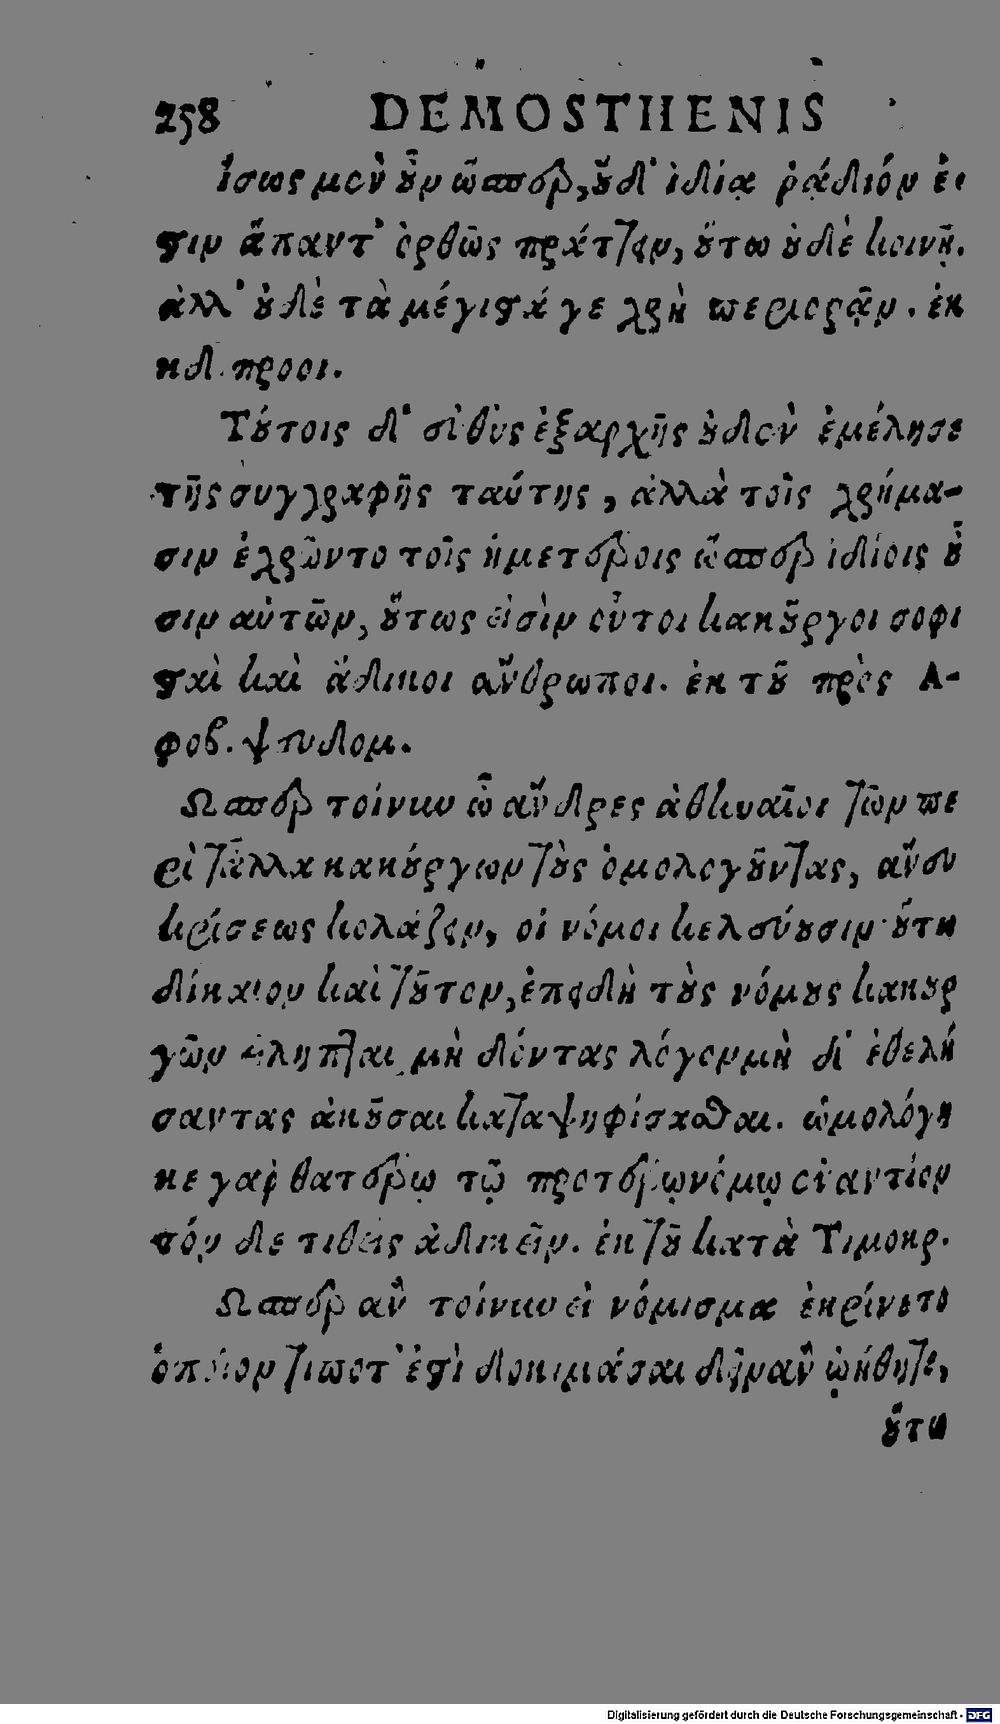 258 DEMOSTHENIS
Ἴσως μὲν οὖν ὥσπερ, οὐδ' ἰδίᾳ ῥᾴδιόν ἐ-
στιν ἅπαντ' ὀρθῶς πράττειν, οὕτω οὐδὲ κοινῇ.
ἀλλ' οὐδὲ τὰ μέγιστά γε χρὴ περιορᾶν. ἐκ
κδ. προοι.
Τούτοις δ' εὐθὺς ἐξαρχῆς οὐδὲν ἐμέλησε
τῆς συγγραφῆς ταύτης, ἀλλὰ τοῖς χρήμα-
σιν ἐχρῶντο τοῖς ἡμετέροις ὥσπερ ἰδίοις οὖ
σιν αὐτῶν, οὕτως εἰσὶν οὗτοι κακοῦργοι σοφι
σταὶ καὶ ἄδικοι ἄνθρωποι. ἐκ τοῦ πρὸς Α-
φοβ. ψευδομ.
Ὥσπερ τοίνυν ὦ ἄνδρες ἀθηναῖοι τῶν πε
ρὶ τἆλλα κακούργων τοὺς ὁμολογοῦντας, ἄνευ
κρίσεως κολάζειν, οἱ νόμοι κελεύουσιν· οὕτω
δίκαιον καὶ τοῦτον, ἐπειδὴ τοὺς νόμους κακουρ
γῶν εἴληπται, μὴ δόντας λόγον μὴ δ' ἐθελή
σαντας ἀκοῦσαι καταψηφίσασθαι. ὡμολόγη
κε γὰρ θατέρῳ τῷ προτέρῳ νόμῳ ἐναντίον
τόν δε τιθεὶς ἀδικεῖν. ἐκ τοῦ κατὰ Τιμοκρ.
Ὥσπερ ἂν τοίνυν εἰ νόμισμα ἐκρίνετο
ὁποῖον τί ποτ' ἐστὶ δοκιμάσαι δεῖν ἂν ᾠήθητε,
οὕτω
Digitalisierung gefördert durch die Deutsche Forschungsgemeinschaft - DFG